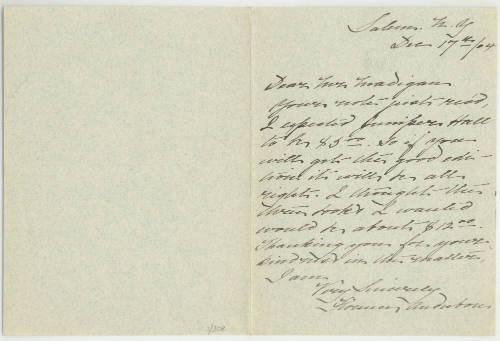 Salem. N. Y
Dec 17th/04
Dear Mrs Madigan
Your note just rec'd,
I expected Juniper Hall
to be $5.00. So if you
will get the good edi-
tion it will be all
right. I thought the
three books I wanted
would be about $12.00.
Thanking you for your
kindness in this matter,
I am
Very Sincerely
Florence Audubon